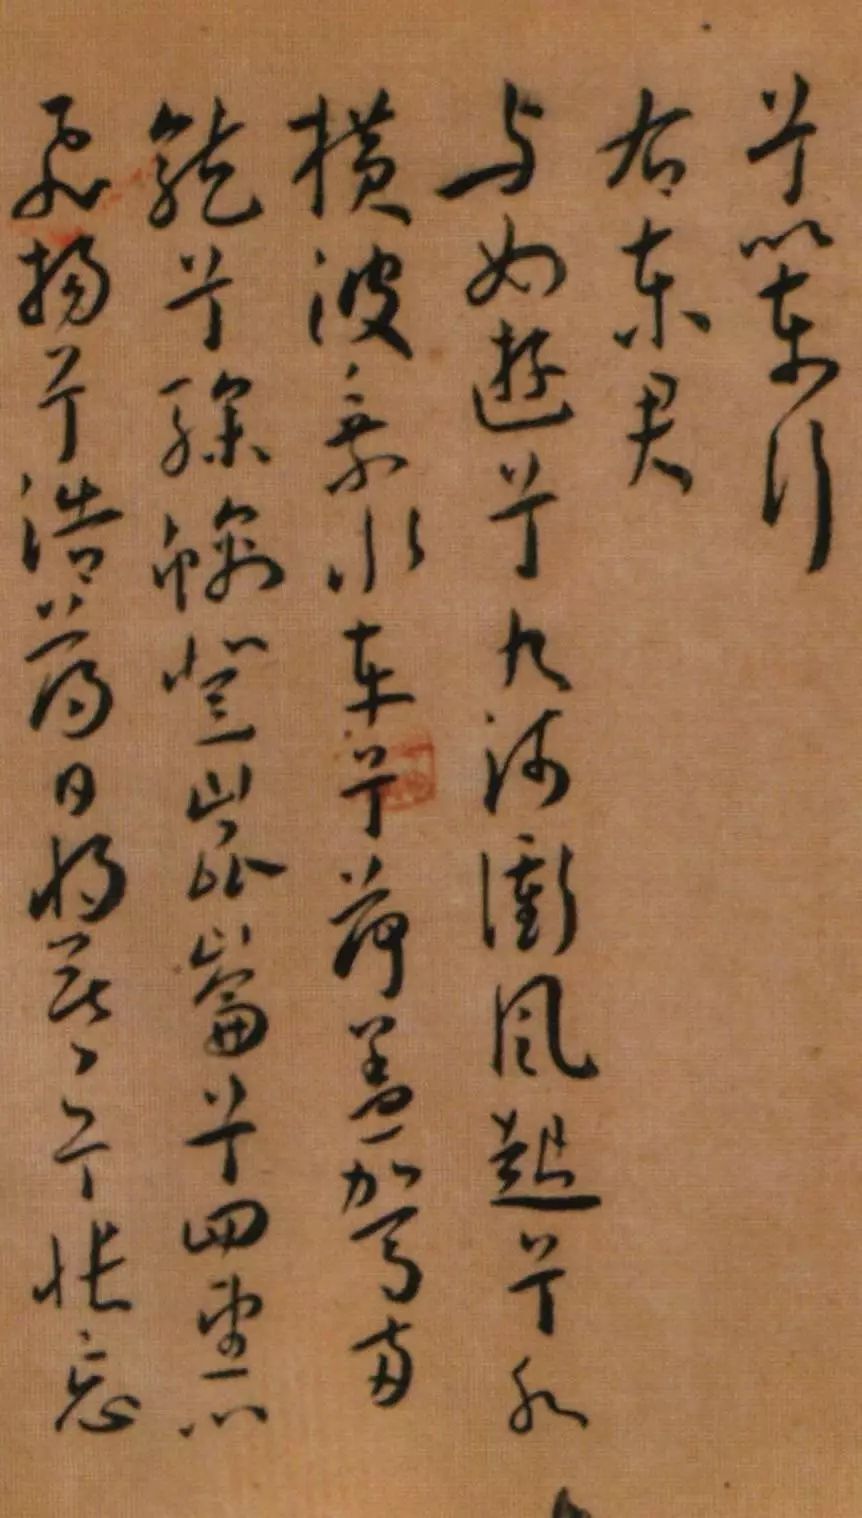 兮以東行
右東君
与女遊兮九河衝風起兮水
橫波乘水車兮荷蓋駕兩
龍兮驂螭登崑崙兮四望心
飛揚兮浩蕩日將暮兮悵忘